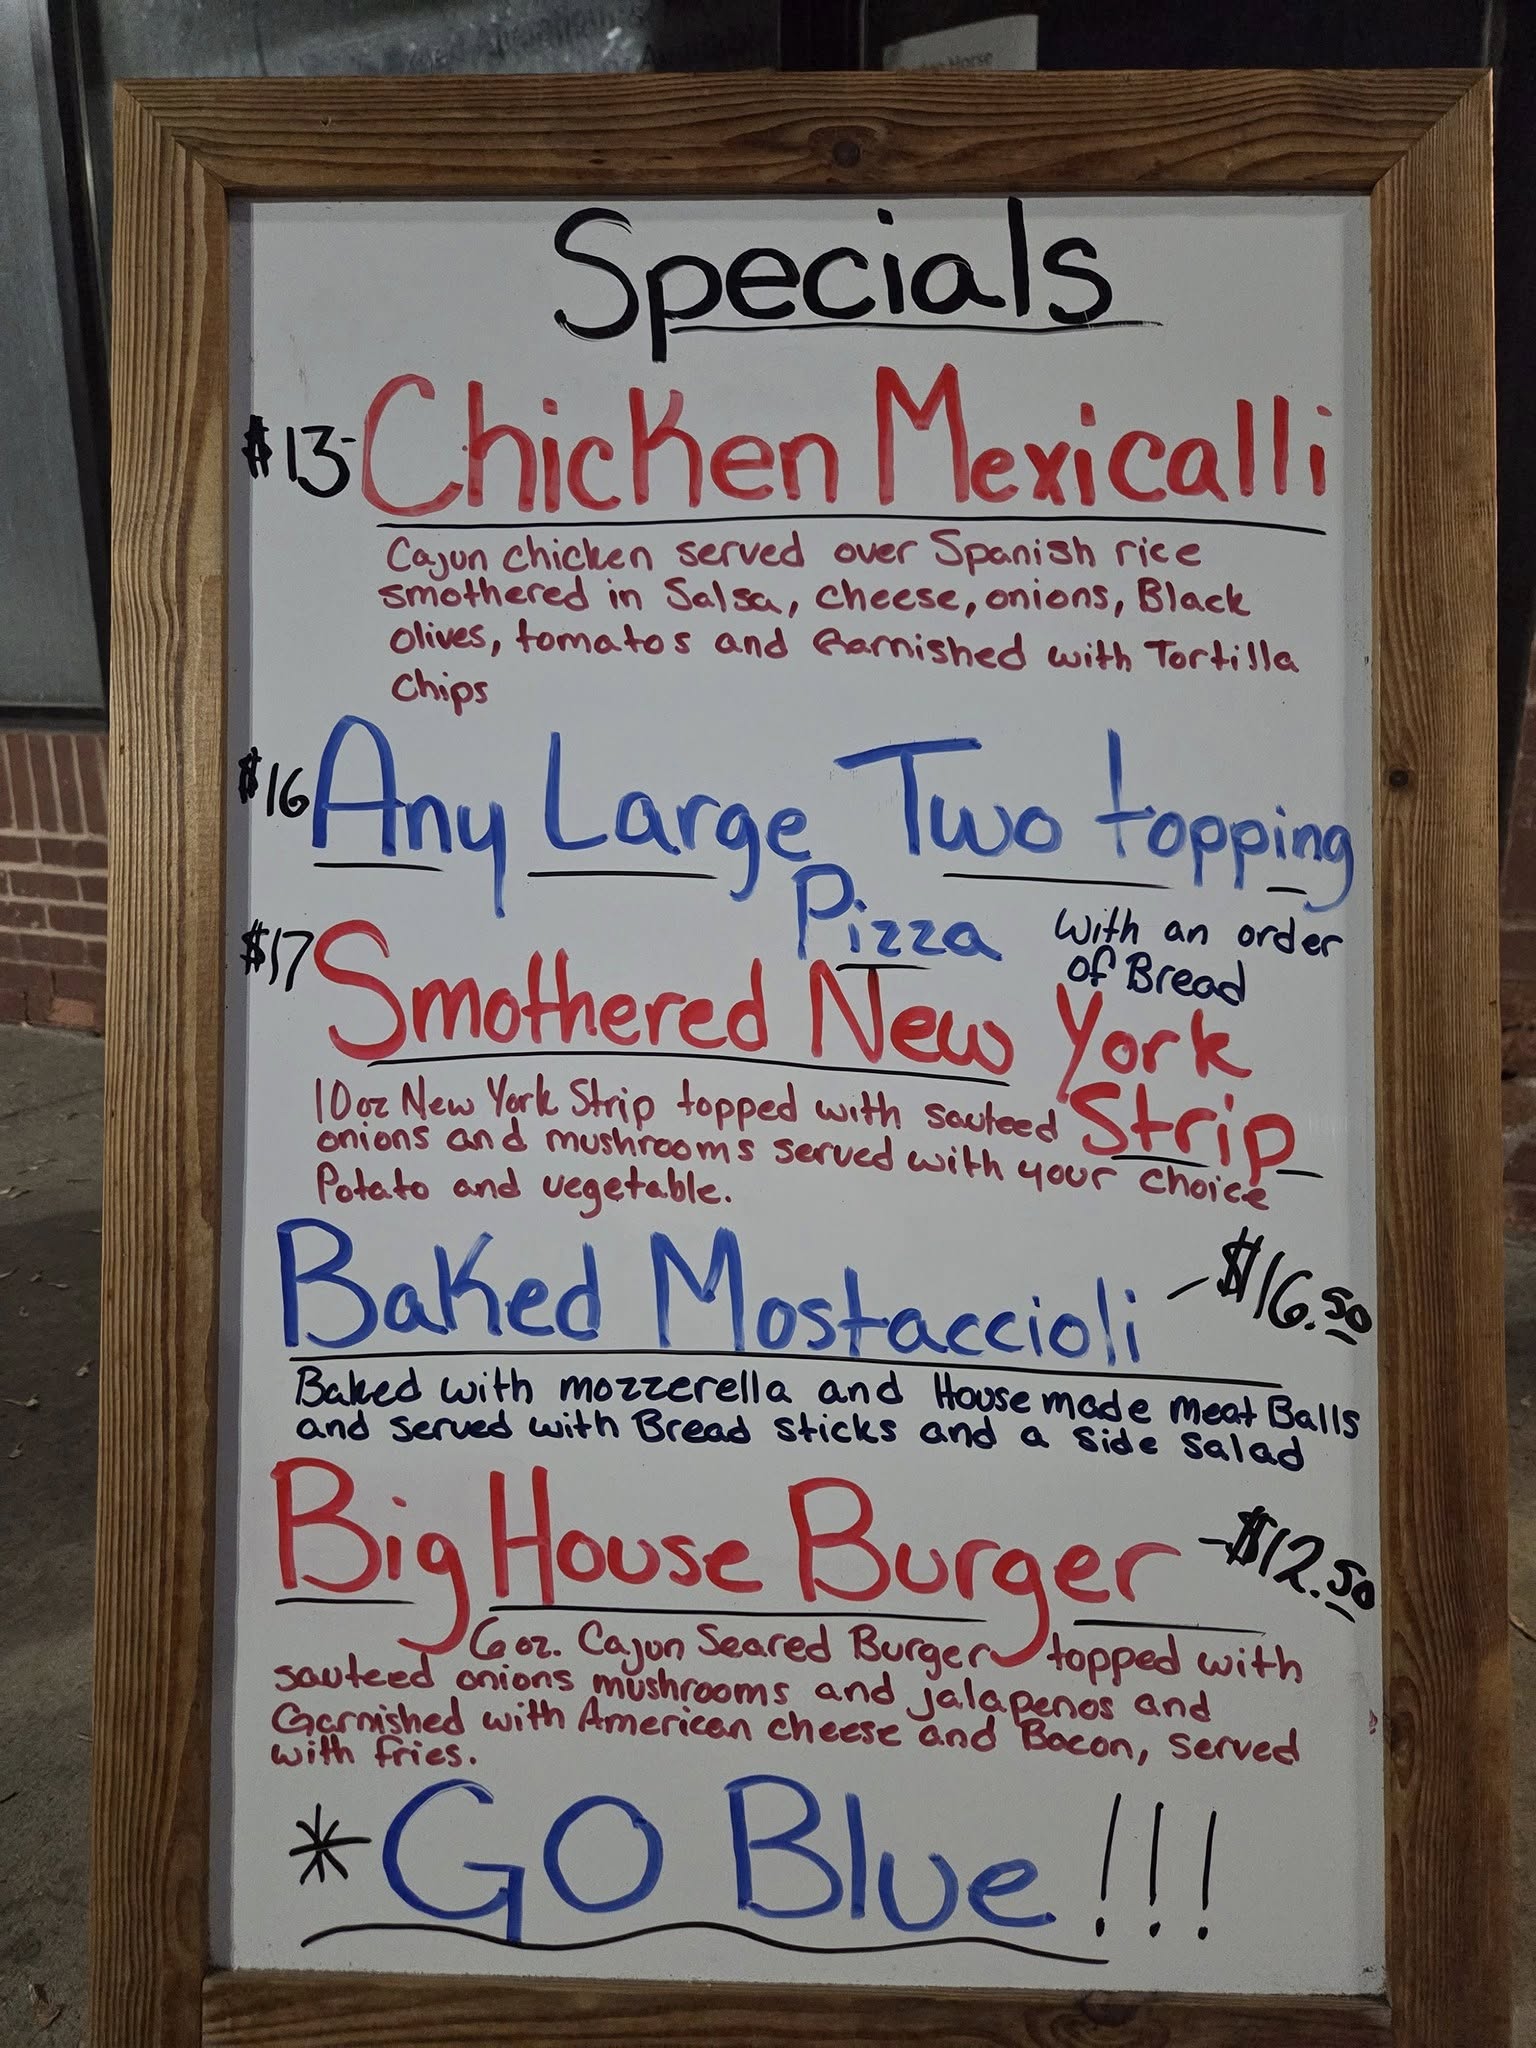 Specials
$13- Chicken Mexicalli
Cajun chicken served over Spanish rice
smothered in Salsa, cheese, onions, Black
olives, tomatos and Garnished with Tortilla
chips
$16 Any Large Two topping
Pizza
with an order
of Bread
$17 Smothered New York
Strip
10oz New York Strip topped with sauteed
onions and mushrooms served with your choice
Potato and vegetable.
Baked Mostaccioli - $16.50
Baked with mozzerella and House made meat Balls
and served with Bread sticks and a side salad
Big House Burger - $12.50
6 oz. Cajun Seared Burger topped with
sauteed onions mushrooms and jalapenos and
Garnished with American cheese and Bacon, served
with fries.
* GO Blue!!!